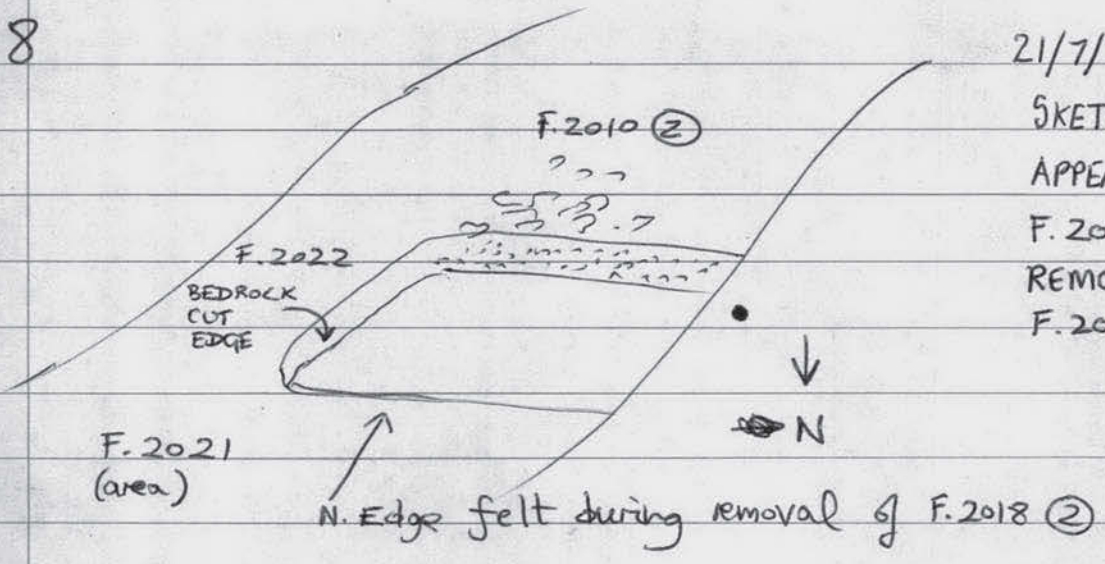 8
21/7/
SKET
APPEA
F. 20
REMO
F. 20
F. 2010 ②
F. 2022
BEDROCK
CUT
EDGE
N
F. 2021
(area)
N. Edge felt during removal of F. 2018 ②